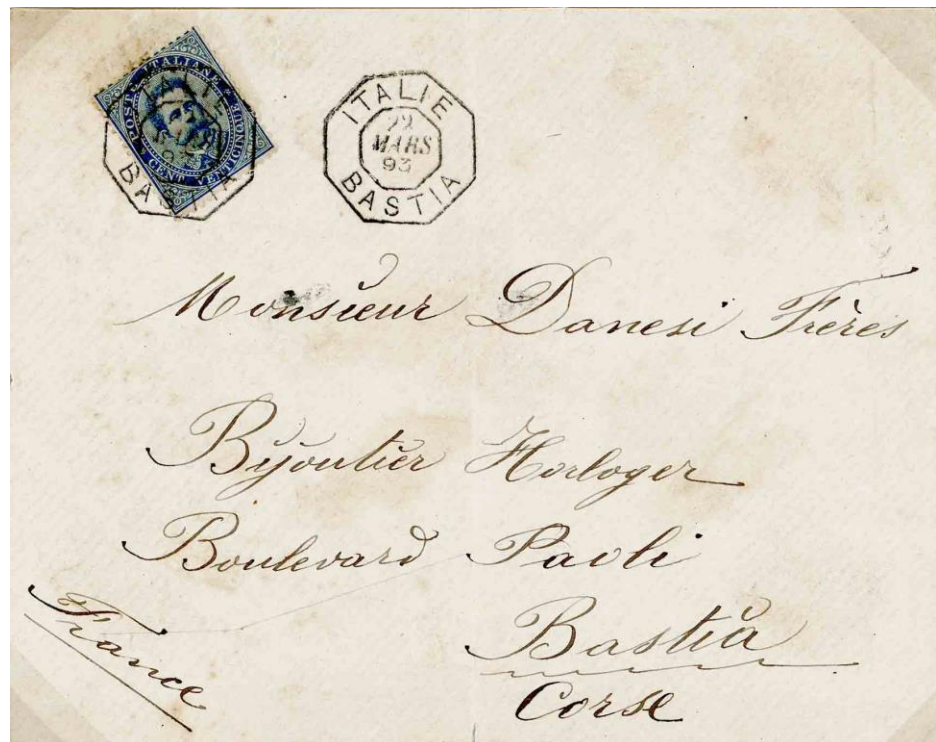 POSTE ITALIANE
CENT. VENTICINQUE
ITALIE
BASTIA
ITALIE
22
MARS
93
BASTIA
Monsieur Danesi Frères
Bijoutier Horloger
Boulevard Paoli
Bastia
Corse
France